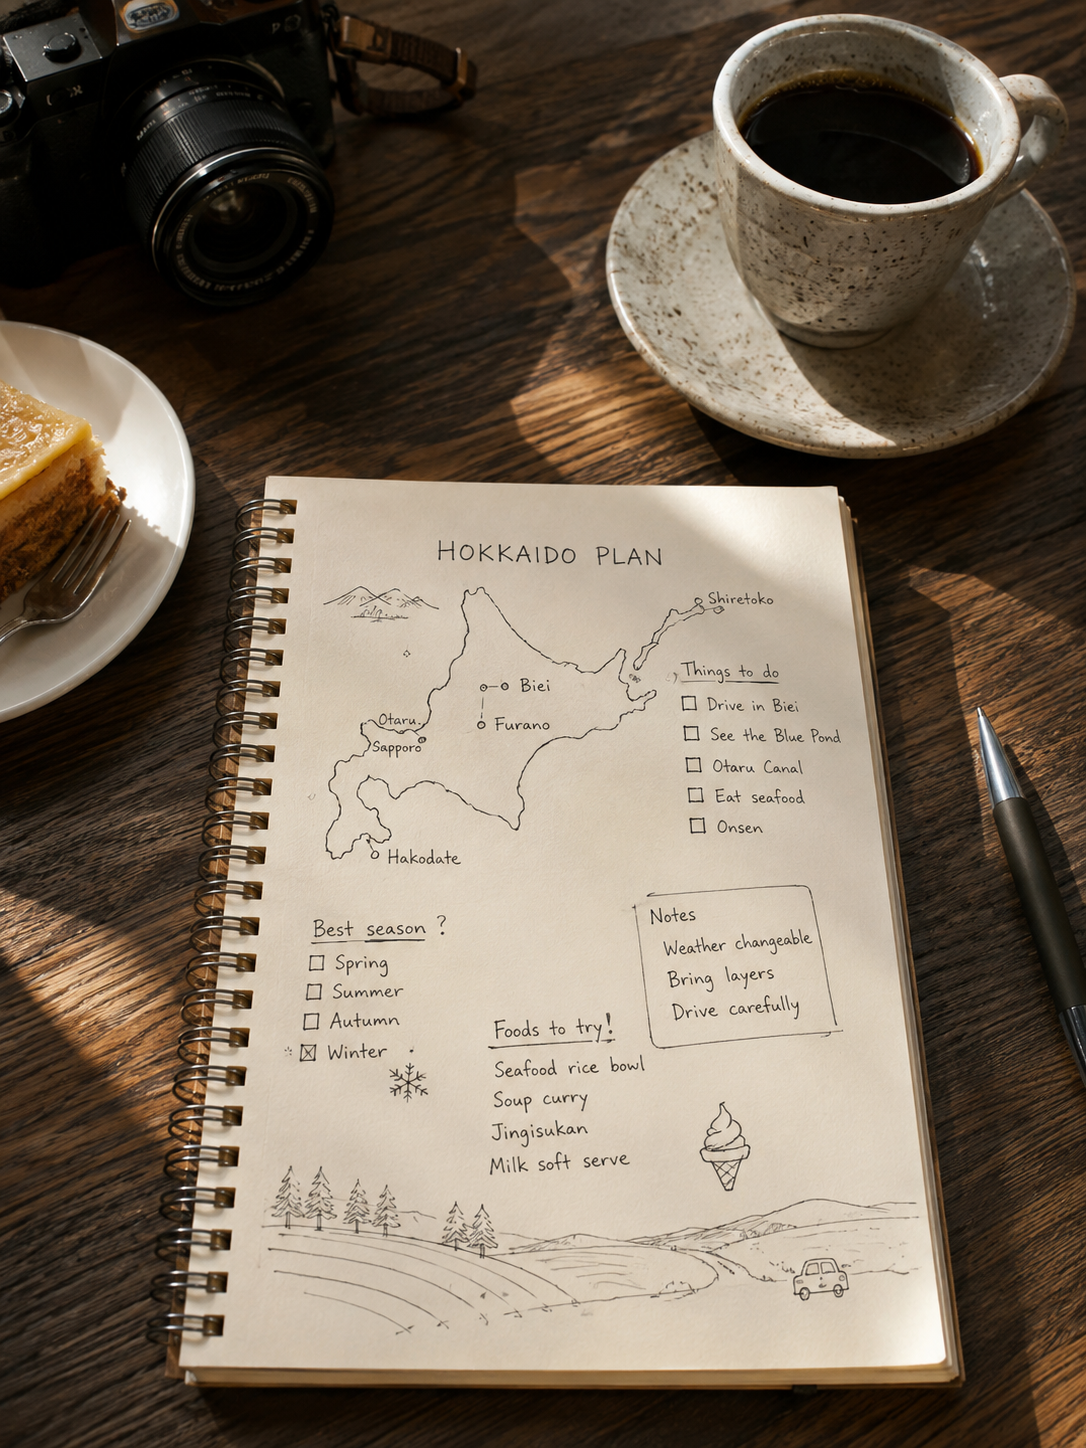 HOKKAIDO PLAN
Shiretoko
Biei
Furano
Otaru
Sapporo
Hakodate
Things to do
Drive in Biei
See the Blue Pond
Otaru Canal
Eat seafood
Onsen
Best season ?
Spring
Summer
Autumn
Winter
Notes
Weather changeable
Bring layers
Drive carefully
Foods to try!
Seafood rice bowl
Soup curry
Jingisukan
Milk soft serve